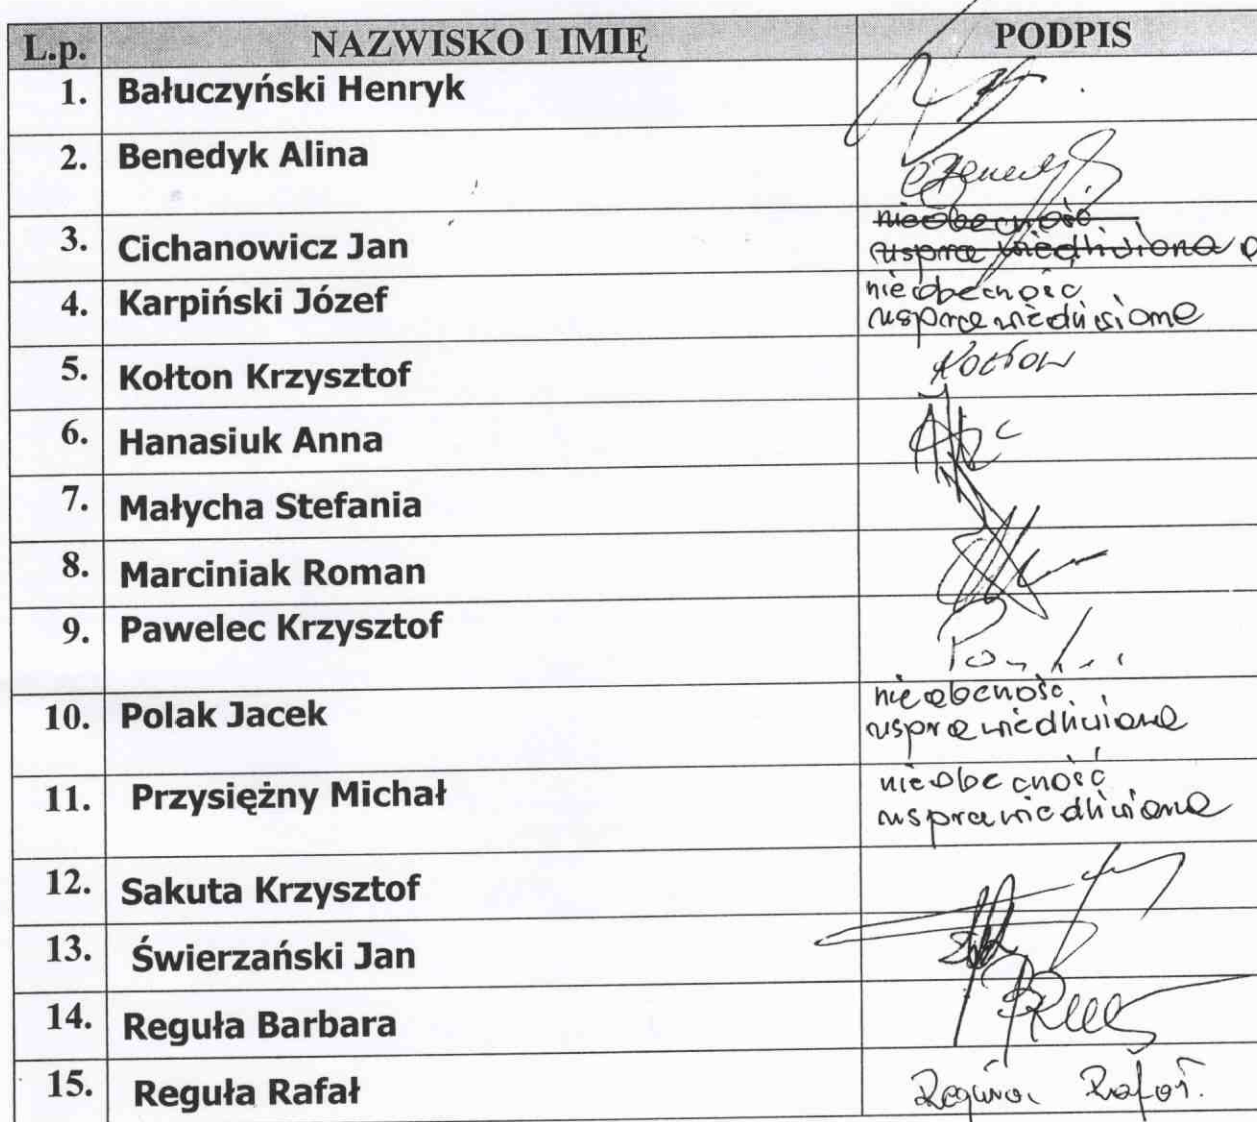 L.p. NAZWISKO I IMIĘ PODPIS
1. Bałuczyński Henryk
2. Benedyk Alina
3. Cichanowicz Jan nieobecność
usprawiedliwiona
4. Karpiński Józef nieobecność
usprawiedliwiona
5. Kołton Krzysztof Kołton
6. Hanasiuk Anna
7. Małycha Stefania
8. Marciniak Roman
9. Pawelec Krzysztof
10. Polak Jacek nieobecność
usprawiedliwiona
11. Przysiężny Michał nieobecność
usprawiedliwiona
12. Sakuta Krzysztof
13. Świerzański Jan
14. Reguła Barbara
15. Reguła Rafał Reguła Rafał